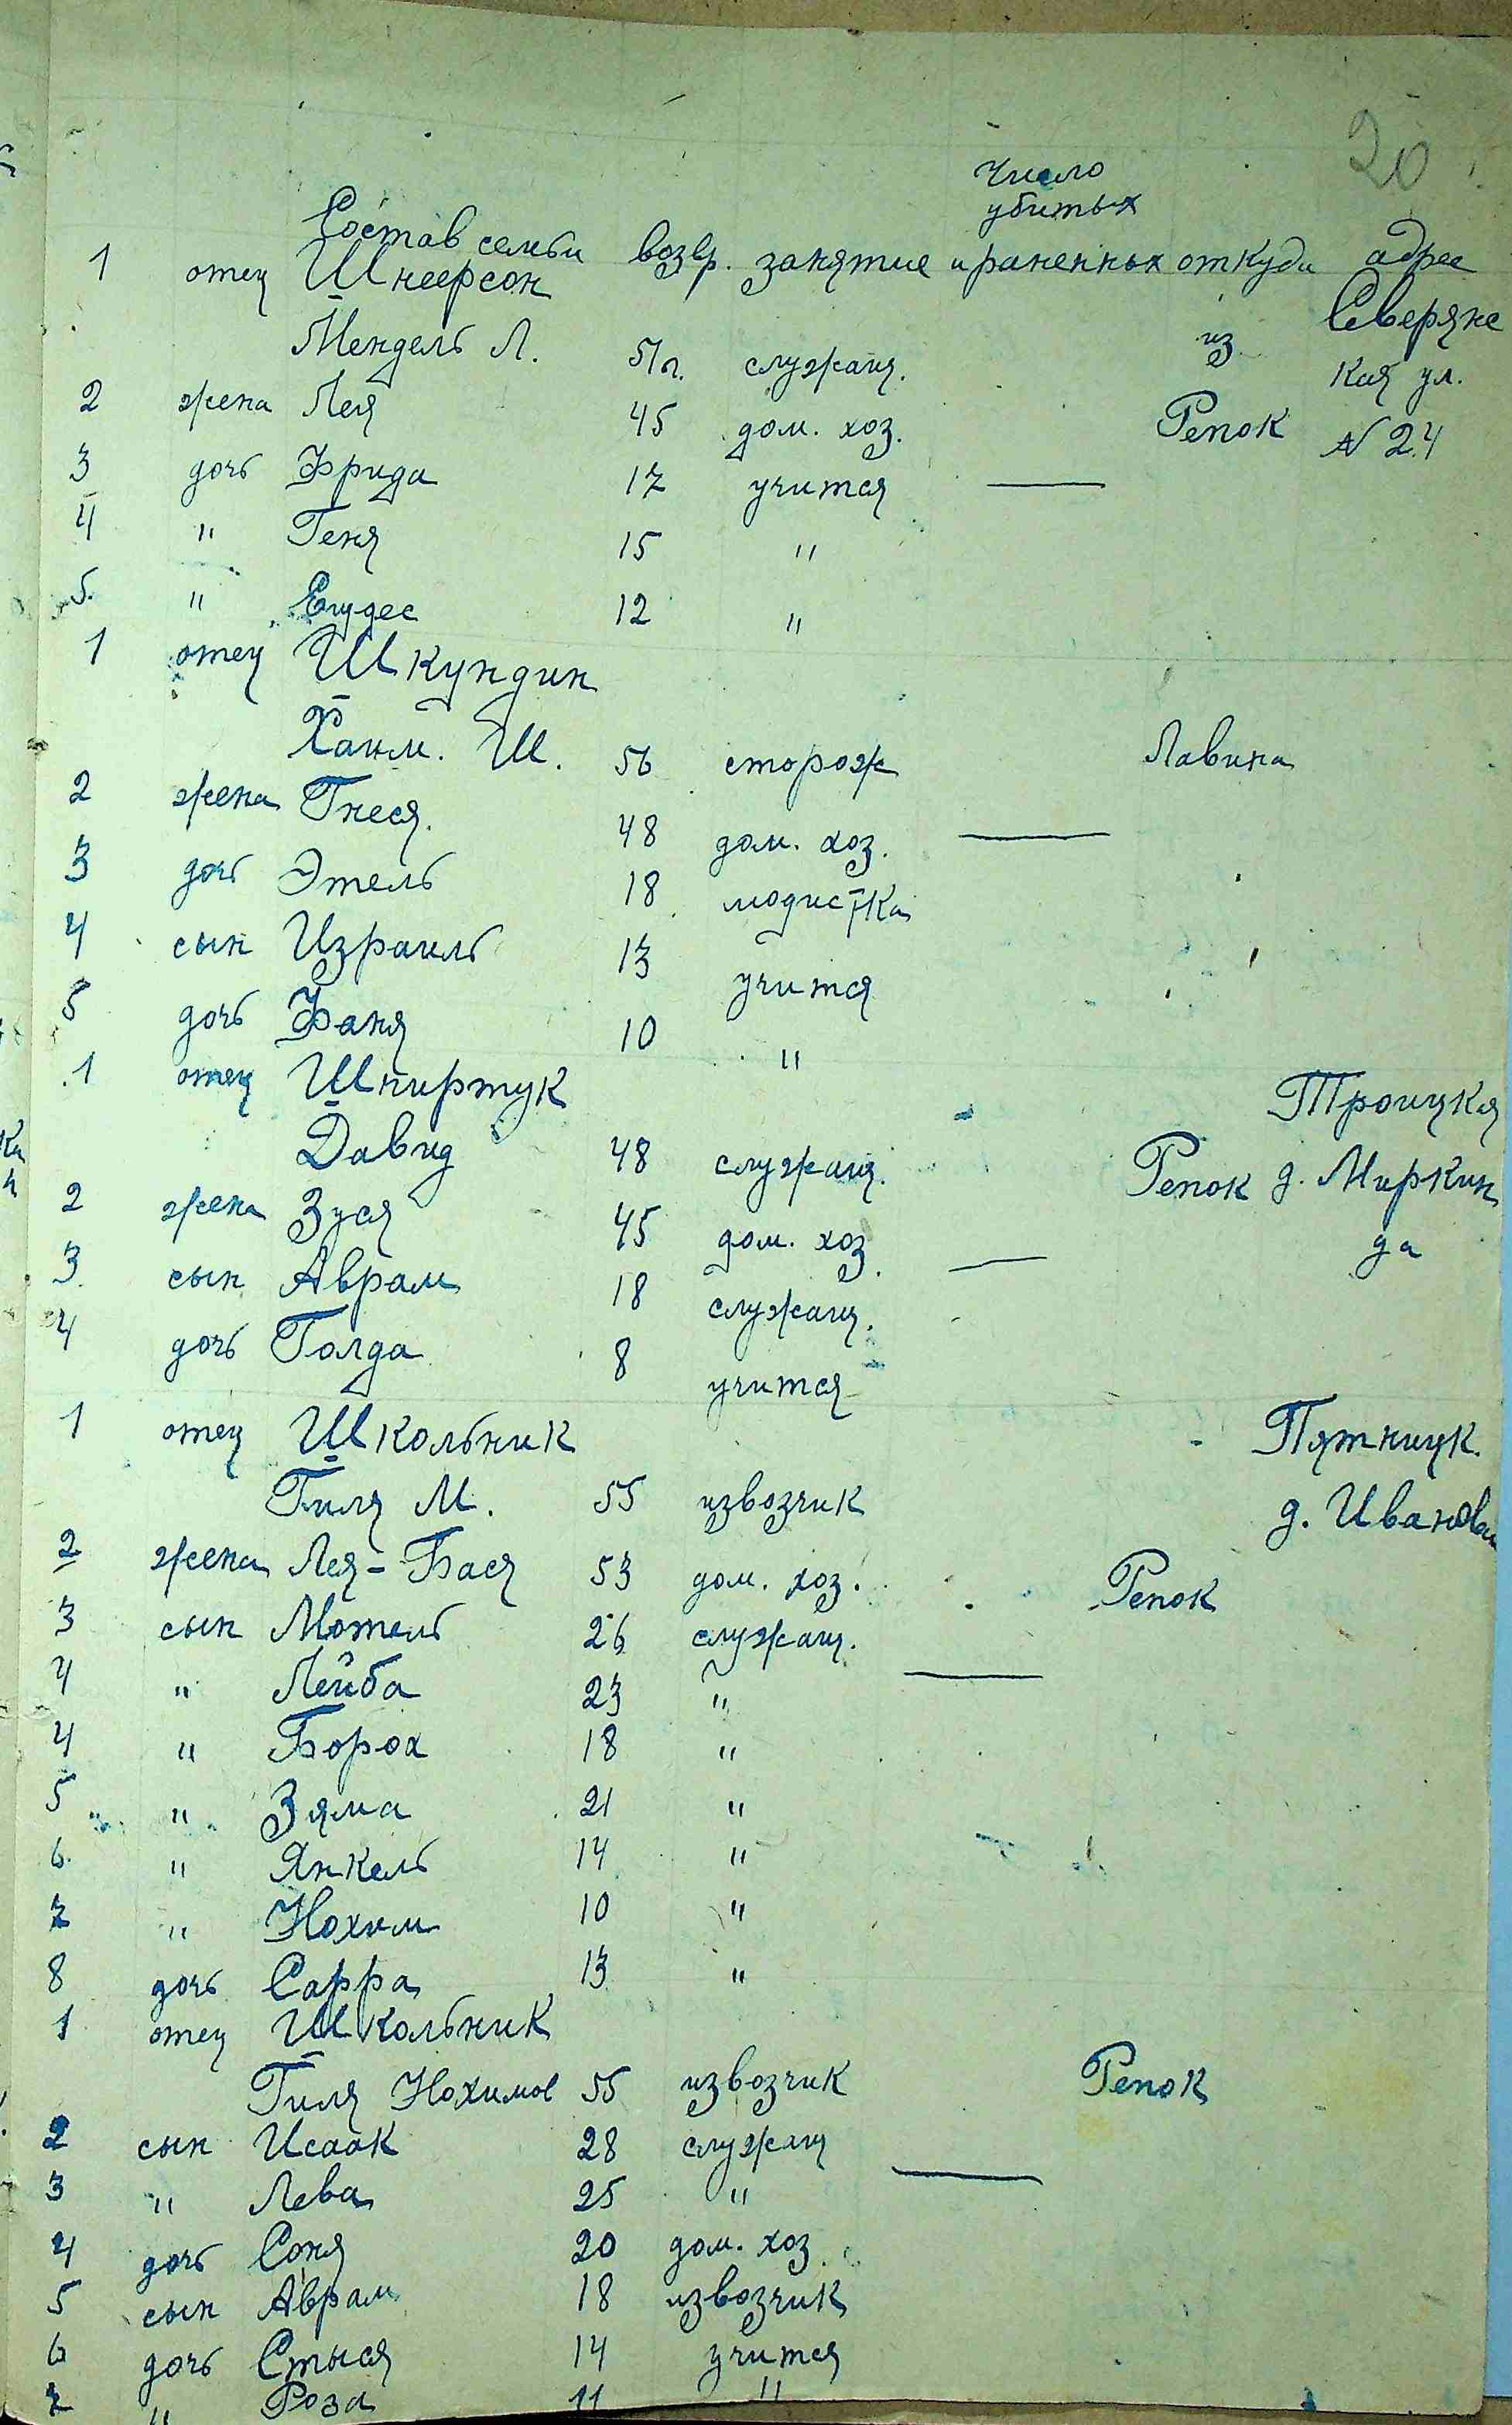 20
Число
убитых
Состав семьи возр. занятие и раненных откуда адрес
1 отец Шнеерсон Северянс
Мендель Л. 51 л. служащ. из кая ул.
2 жена Лея 45 дом. хоз. Репок N 24
3 дочь Фрида 17 учится —
4 " Геня 15 "
5. " 12 "
1 отец Шкундин
Хаим. Ш. 56 сторож Лавина
2 жена Гнеся. 48 дом. хоз. —
3 дочь Этель 18 модистка
4 сын Израиль 13 учится
5 дочь Фаня 10 "
1 отец Шпиртук Троицкая
Давид 48 служащ. Репок д. Миркин
2 жена Зуся 45 дом. хоз. — да
3. сын Аврам 18 служащ.
4 дочь Голда 8 учится
1 отец Школьник Пятницк.
Гиля М. 55 извозчик д. Иванова
2 жена Лея-Бася 53 дом. хоз. Репок
3 сын Мотель 26 служащ. —
4 " Лейба 23 "
4 " Борох 18 "
5 " Зяма 21 "
6. " Янкель 14 "
7 " Нохим 10 "
8 дочь Сарра 13 "
1 отец Школьник
Гиля Нохимов 55 извозчик Репок
2 сын Исаак 28 служащ —
3 " Лева 25 "
4 дочь Соня 20 дом. хоз.
5 сын Аврам 18 извозчик
6 дочь Стыся 14 учится
7 " Роза 11 "